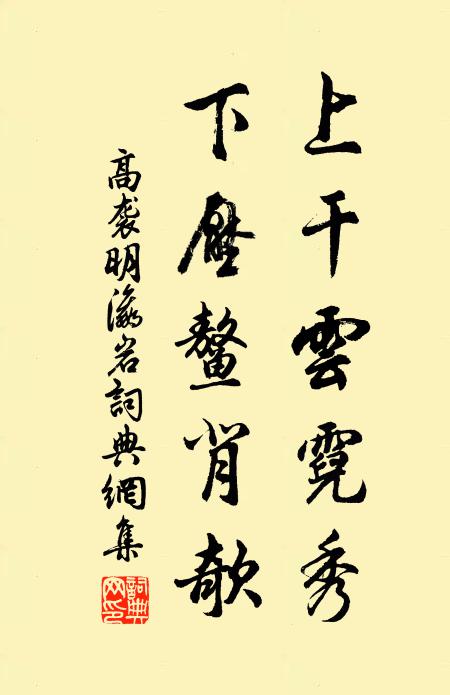 上干雲霓秀
下壓鼇背欹
高袭明瀛岩詞典網集
詞典网印